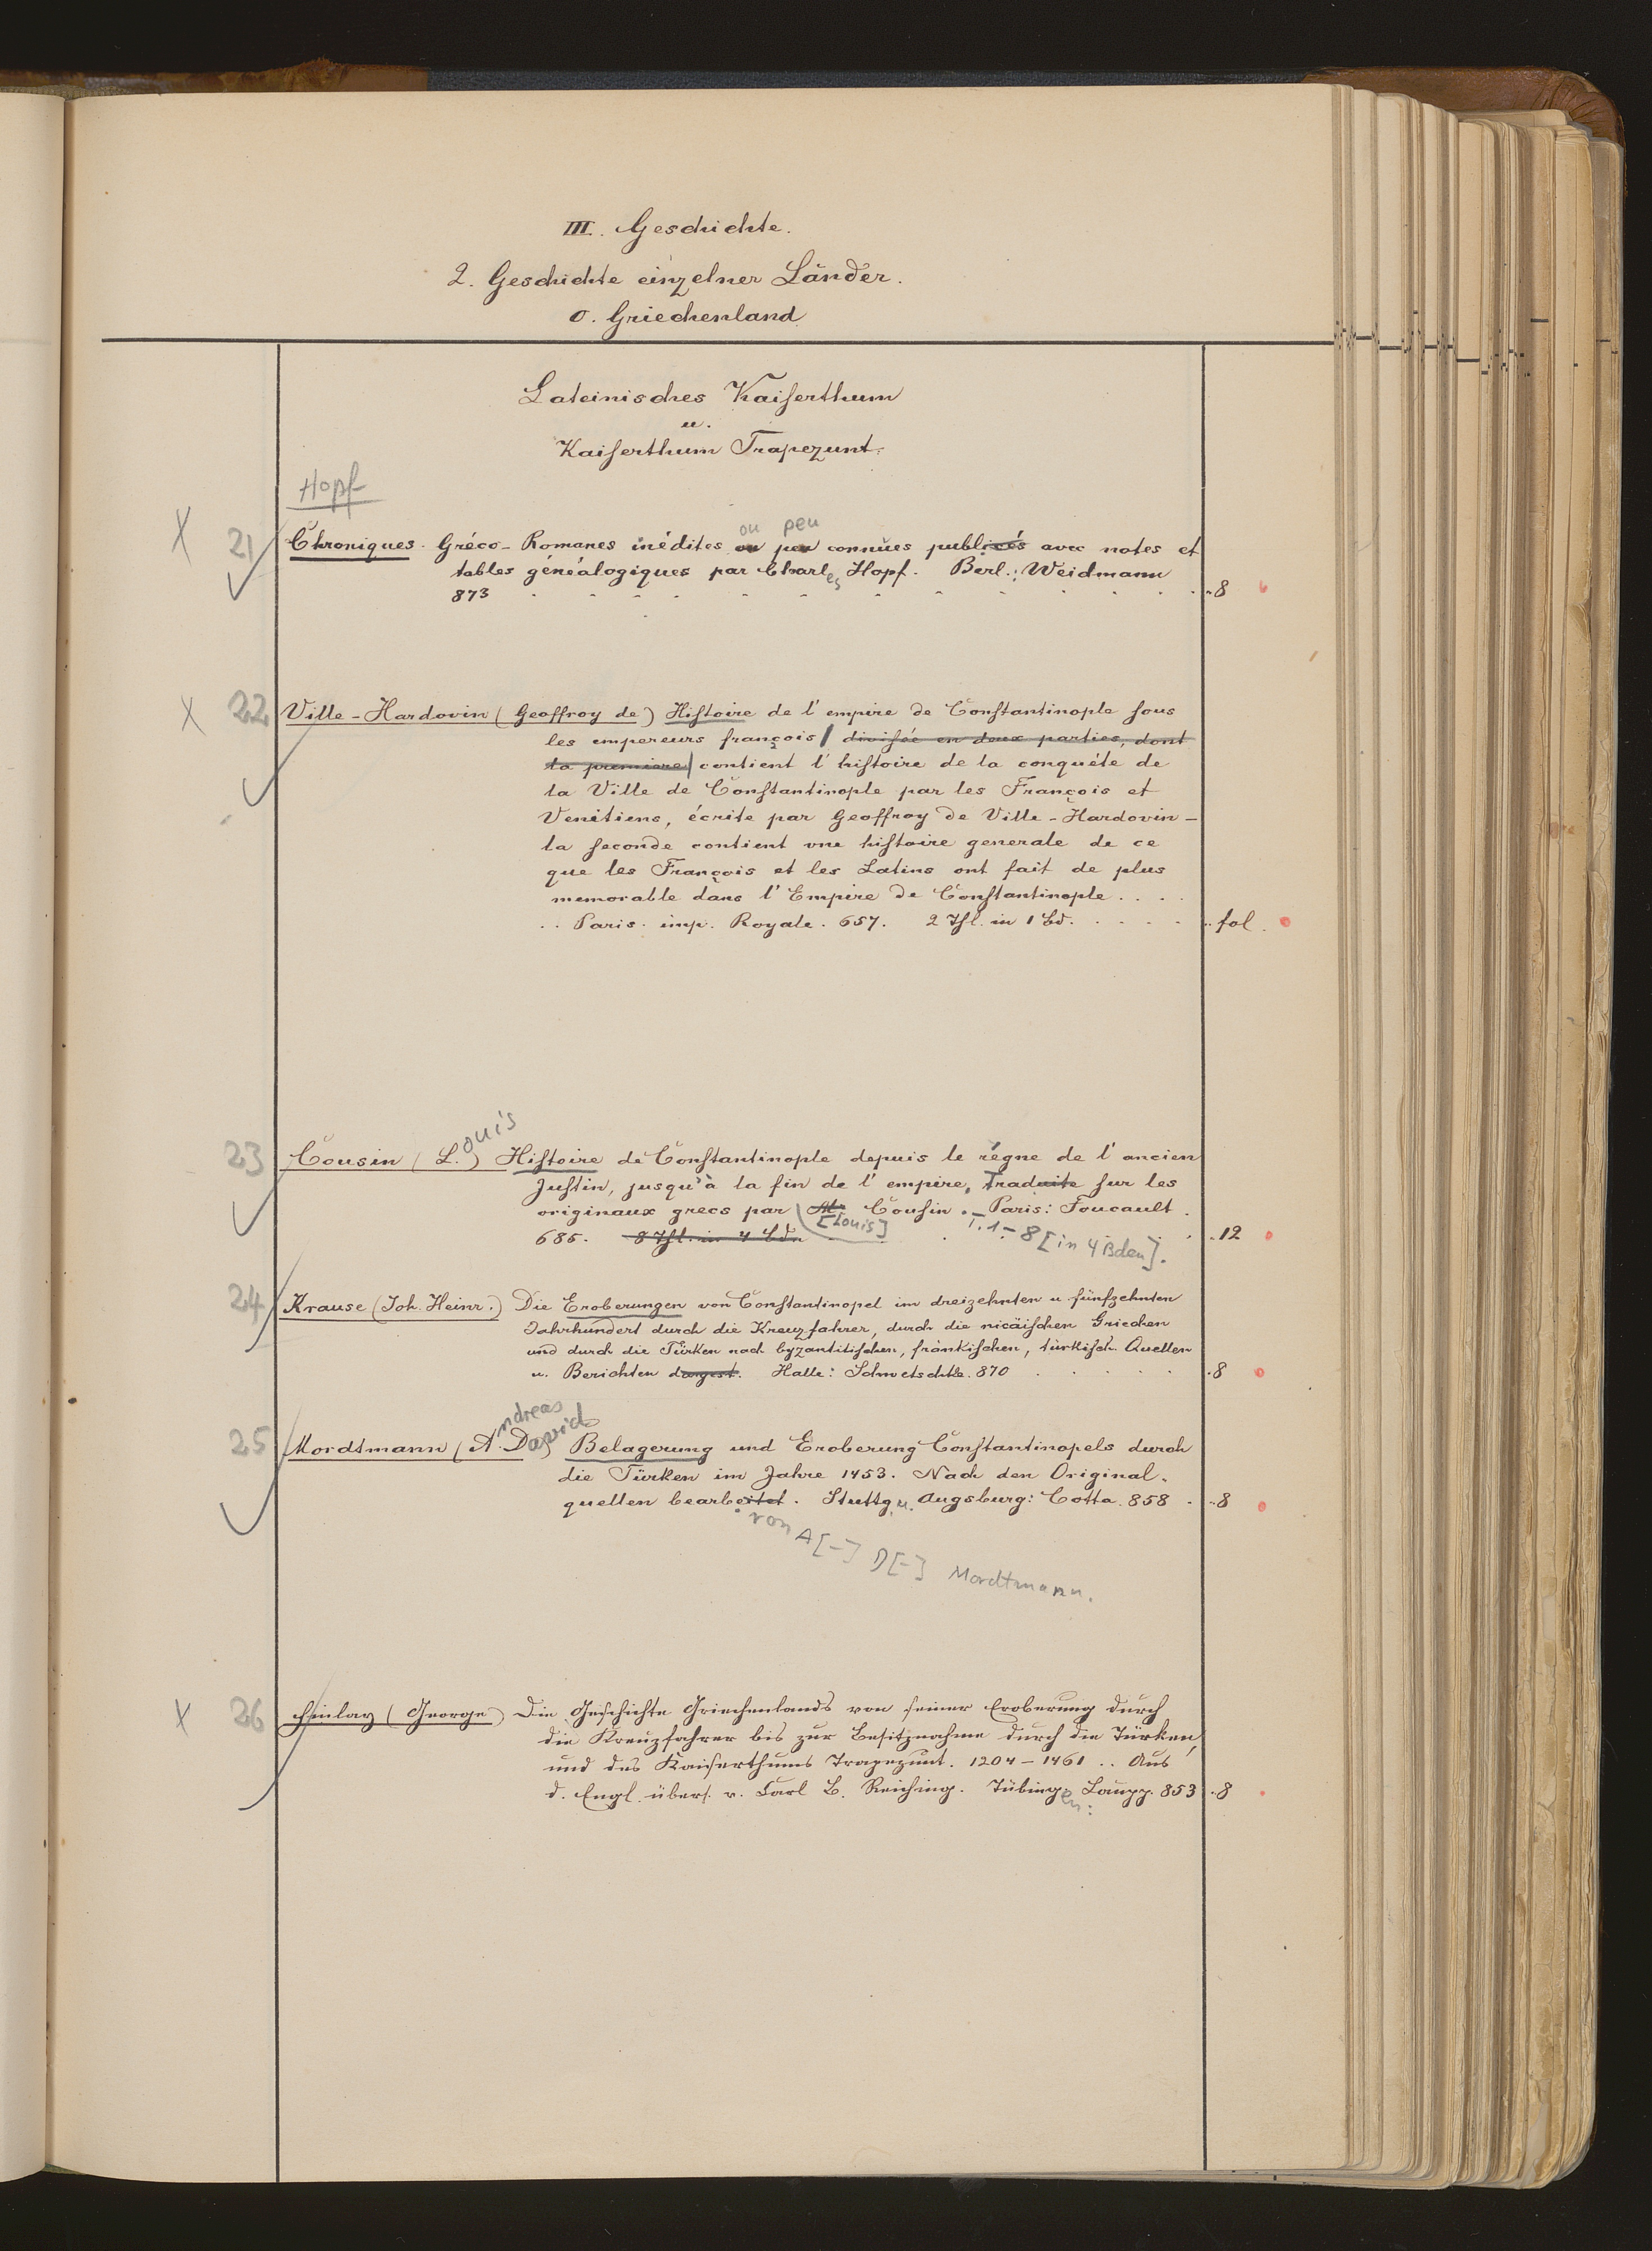 III. Geschichte.
2. Geschichte einzelner Länder.
o. Griechenland
Lateinisches Kaiserthum
u.
Kaiserthum Trapezunt.
Hopf
ou peu
X 21 Chroniques Gréco-Romanes inédites ou peu connues publiées avec notes et
tables généalogiques par Charles Hopf. Berl.: Weidmann
873 8
X 22 Ville-Hardovin (Geoffroy de) Histoire de l'empire de Constantinople sous
les empereurs françois divisée en deux parties, dont
la premiere contient l'histoire de la conquéte de
la Ville de Constantinople par les François et
Venitiens, écrite par Geoffroy de Ville-Hardovin –
la seconde contient vne histoire generale de ce
que les François et les Latins ont fait de plus
memorable dans l'Empire de Constantinople . . . .
. . Paris. imp. Royale. 657. 2 Thl. in 1 Bd. fol.
23 Cousin (L.ouis) Histoire de Constantinople depuis le régne de l'ancien
Justin, jusqu'à la fin de l'empire. Traduite sur les
originaux grecs par Mr. Cousin. – Paris: Foucault.
[Louis] T. 1–8 [in 4 Bden].
685. 8 Thl. in 4 Bdn 12
24 Krause (Joh. Heinr.) Die Eroberungen von Constantinopel im dreizehnten u fünfzehnten
Jahrhundert durch die Kreuzfahrer, durch die nicäischen Griechen
und durch die Türken nach byzantitischen, fränkischen, türkisch. Quellen
u. Berichten dargest. Halle: Schwetschke. 870 8
25 Mordtmann (A.ndreas David) Belagerung und Eroberung Constantinopels durch
die Türken im Jahre 1453. Nach den Original-
quellen bearbeitet. Stuttg. u. Augsburg: Cotta. 858 8
. von A[–] D[–] Mordtmann.
X 26 Finlay (George) Die Geschichte Griechenlands von seiner Eroberung durch
die Kreuzfahrer bis zur Besitznahme durch die Türken,
und des Kaiserthums Trapezunt. 1204–1461 . . Aus
d. Engl. übers. v. Carl B. Reiching. Tübingen: Laupp. 853 8